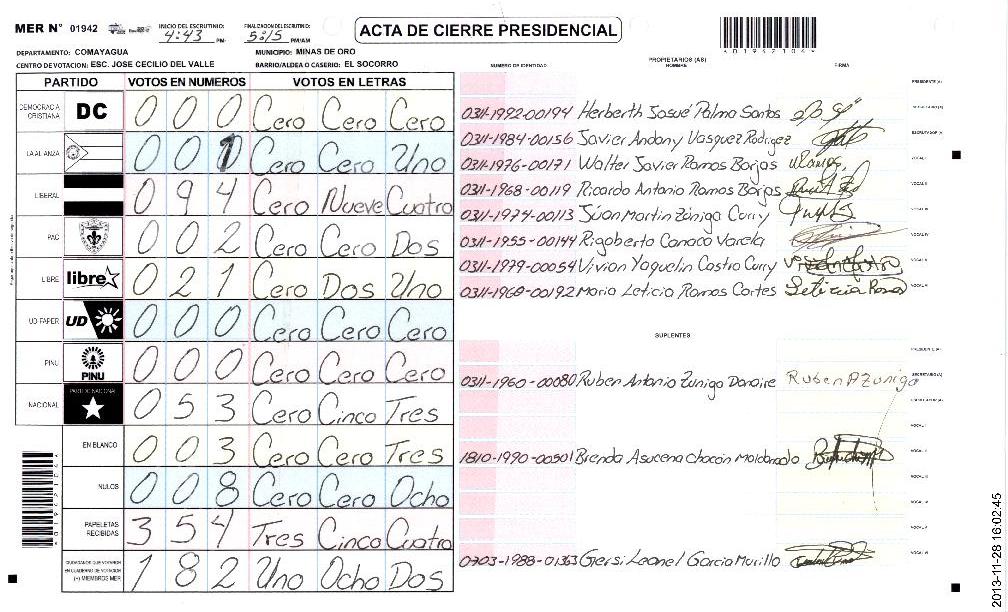 MER N° 01942 INICIO DEL ESCRUTINIO: 4:43 PM- FINALIZACION DEL ESCRUTINIO: 5:15 PM/AM
ACTA DE CIERRE PRESIDENCIAL
DEPARTAMENTO: COMAYAGUA MUNICIPIO: MINAS DE ORO
CENTRO DE VOTACION: ESC. JOSE CECILIO DEL VALLE BARRIO/ALDEA O CASERIO: EL SOCORRO
PARTIDO VOTOS EN NUMEROS VOTOS EN LETRAS
DEMOCRACIA CRISTIANA DC 0 0 0 Cero Cero Cero
LA ALIANZA 0 0 1 Cero Cero Uno
LIBERAL 0 9 4 Cero Nueve Cuatro
PAC 0 0 2 Cero Cero Dos
LIBRE libre 0 2 1 Cero Dos Uno
UD-FAPER UD 0 0 0 Cero Cero Cero
PINU PINU 0 0 0 Cero Cero Cero
NACIONAL PARTIDO NACIONAL 0 5 3 Cero Cinco Tres
EN BLANCO 0 0 3 Cero Cero Tres
NULOS 0 0 8 Cero Cero Ocho
PAPELETAS RECIBIDAS 3 5 4 Tres Cinco Cuatro
CIUDADANOS QUE VOTARON EN CUADERNO DE VOTACION (+) MIEMBROS MER 1 8 2 Uno Ocho Dos
PROPIETARIOS (AS)
NUMERO DE IDENTIDAD NOMBRE FIRMA
PRESIDENTE (A)
0311-1992-00194 Herberth Josué Palma Santos SECRETARIO (A)
0311-1984-00156 Javier Andony Vasquez Rodrigez ESCRUTADOR (A)
0311-1976-00171 Walter Javier Ramos Borjas VOCAL I
0311-1968-00119 Ricardo Antonio Ramos Borjas VOCAL II
0311-1974-00113 Júan Martin Zúniga Curry
0311-1955-00144 Rigoberto Canaca Varela
0311-1979-00054 Vivian Yaquelin Castro Curry
0311-1968-00192 Maria Leticia Ramos Cortes Leticia Ramos
SUPLENTES
PRESIDENTE (A)
0311-1960-00080 Ruben Antonio Zuniga Donaire Ruben A Zuniga SECRETARIO (A)
ESCRUTADOR (A)
VOCAL I
1810-1990-00501 Brenda Asucena chacón Maldonado
0703-1988-01363 Gersi Leonel Garcia Murillo
2013-11-28 16:02:45